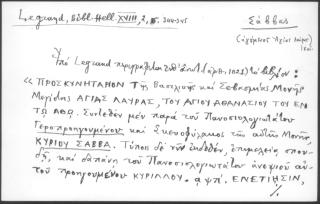 Legrand, Bibl. Hell. XVIII, 2, σ. 344-345
Σάββας
Ὑπὸ Legrand περιγράφεται ὑπ' ἀριθ. 1021) τὸ βιβλίον:
« ΠΡΟΣΚΥΝΗΤΑΡΙΟΝ Τῆς Βασιλικῆς καὶ Σεβασμίας Μονῆς
Μεγίστης ΑΓΙΑΣ ΛΑΥΡΑΣ, ΤΟΥ ΑΓΙΟΥ ΑΘΑΝΑΣΙΟΥ ΤΟΥ ΕΝ
Τῼ ΑΘῼ. Συντεθὲν μὲν παρὰ τοῦ Πανοσιολογιωτάτου
Γεροπροηγουμένου καὶ Σκευοφύλακος τῆς αὐτῆς Μονῆς
ΚΥΡΙΟΥ ΣΑΒΒΑ. Τύποις δὲ νῦν ἐκδοθὲν, ἐπιμελείᾳ σπου-
δῇ, καὶ δαπάνῃ τοῦ Πανοσιολογιωτάτου ἀνεψιοῦ αὐ-
τοῦ προηγουμένου ΚΥΡΙΛΛΟΥ. ΕΝΕΤΙΗΣΙΝ,